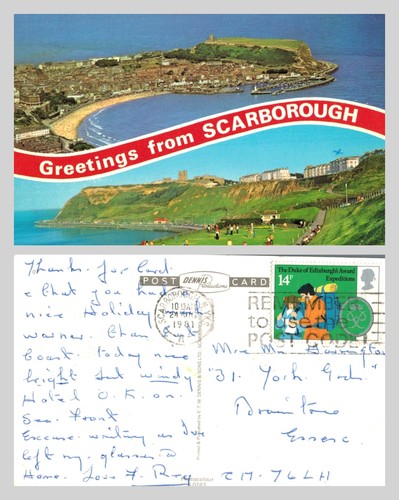 Greetings from SCARBOROUGH
Thanks for Card
& that you had
nice Holiday
warmer than
Coast. today nice
bright but windy
Hotel O.K. on
Sea Front
Excuse writing as I've
left my glasses @
Home. Love F. Roy
POST DENNIS CARD
10 15 AM
1981
The Duke of Edinburgh's Award
Expeditions
14P
REMEMBER
to use the
POST CODE
Mr & Mrs
"31. York Gdn"
Braintree
Essex.
CM-76LH